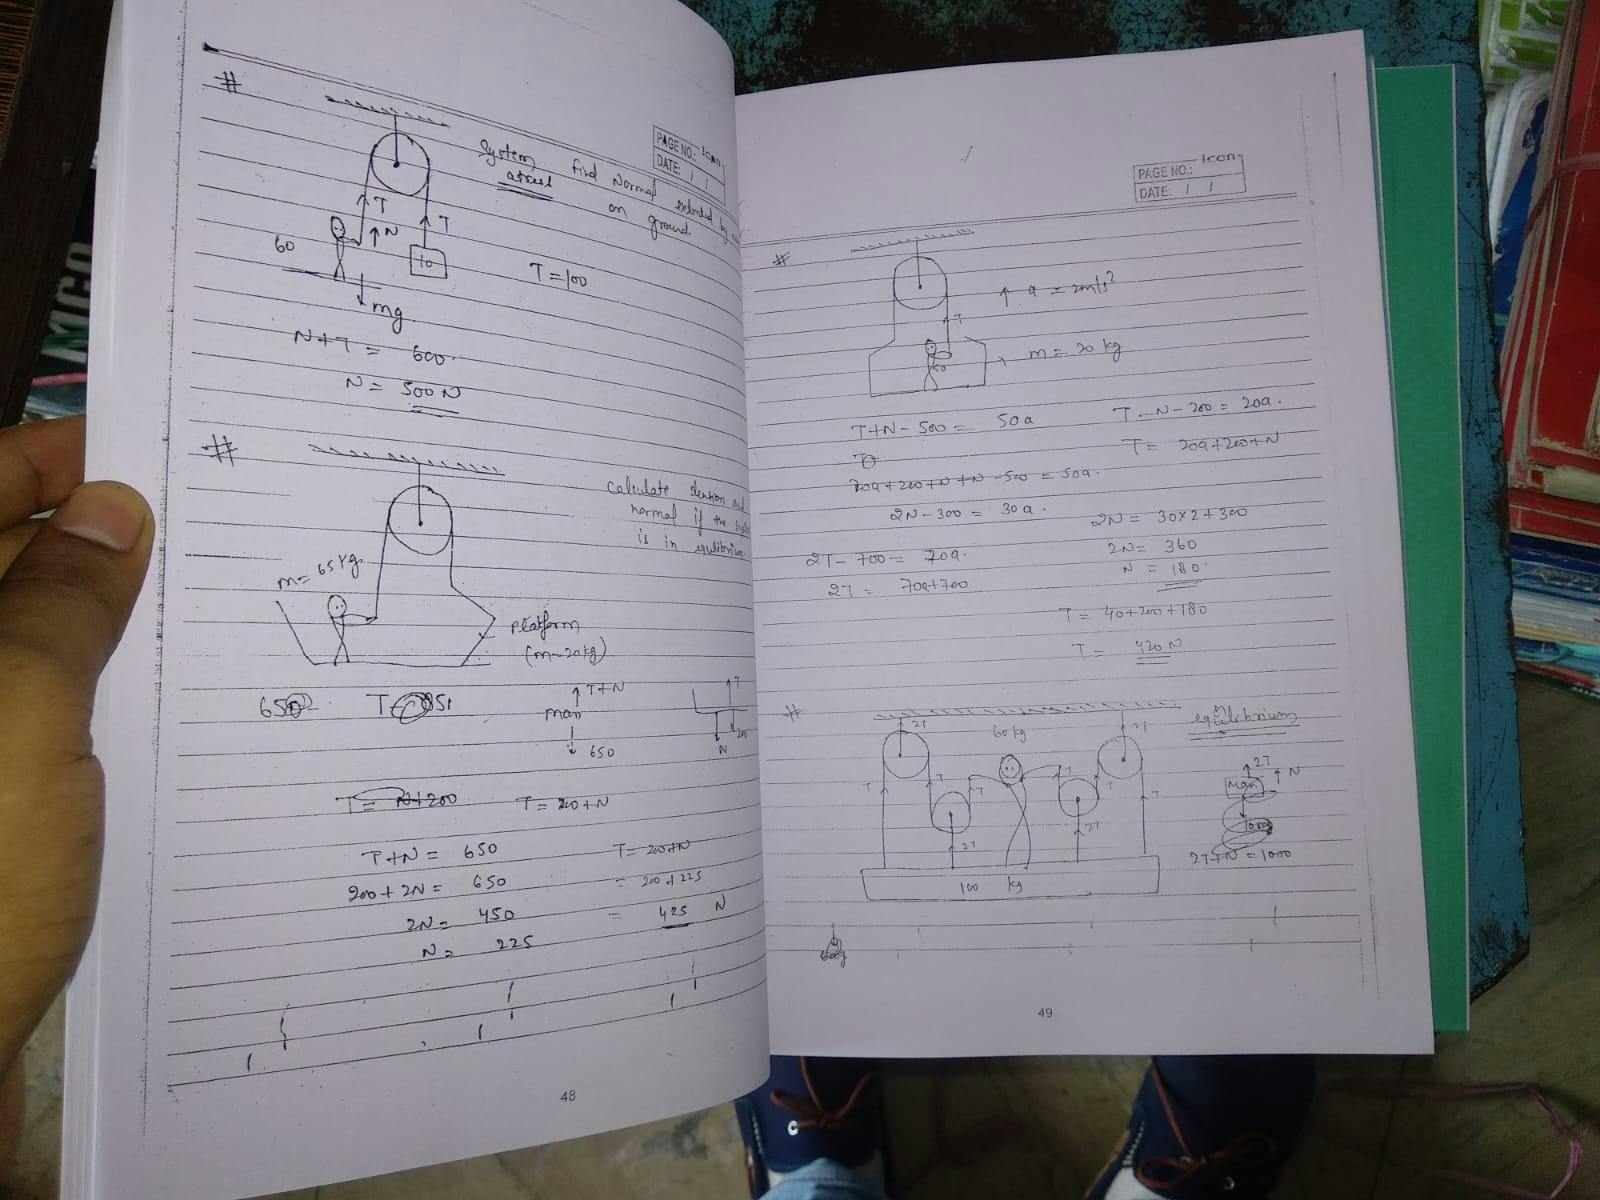 #
PAGE NO.: Icon
DATE: / /
System at rest Find Normal exerted by
on ground.
T
N
T
60
10
T = 100
mg
N+T = 600
N = 500 N
#
Calculate tension and
normal if the
is in equlibrium.
m = 65 kg
Platform
(m=20kg)
650
T
T+N
man
650
T
N
200
T = N+200
T = 200+N
T+N = 650
T = 200+N
200 + 2N = 650
= 200+225
2N = 450
= 425 N
N = 225
48
Icon
PAGE NO.:
DATE: / /
#
a = 2m/s²
T
m = 20 kg
50
T+N - 500 = 50a
T - N - 200 = 20a.
T = 20a+200+N
20a+200+N+N-500 = 50a.
2N-300 = 30a.
2N = 30×2+300
2T - 700 = 70a.
2N = 360
2T = 70a+700
N = 180.
T = 40+200+180
T = 420 N
#
equilibrium
2T
60 kg
2T
T
T
T
T
T
T
2T
2T
100 kg
2T
N
Man
2T+N = 1000
49